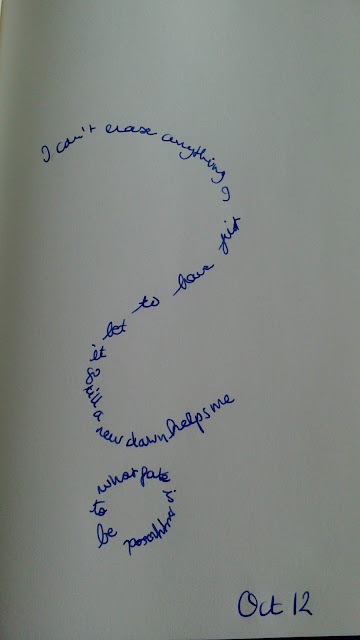 I can't erase anything I
just
have
to
let
it
go
till a
new dawn helps me
what fate
is
to
be
Oct 12